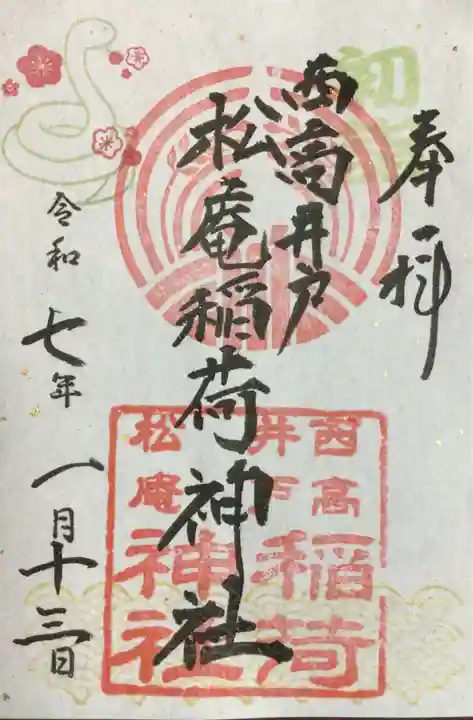 奉拝
初詣
西高井戸
松庵稲荷神社
令和七年一月十三日
西高
井戸
稲荷
松庵
神社